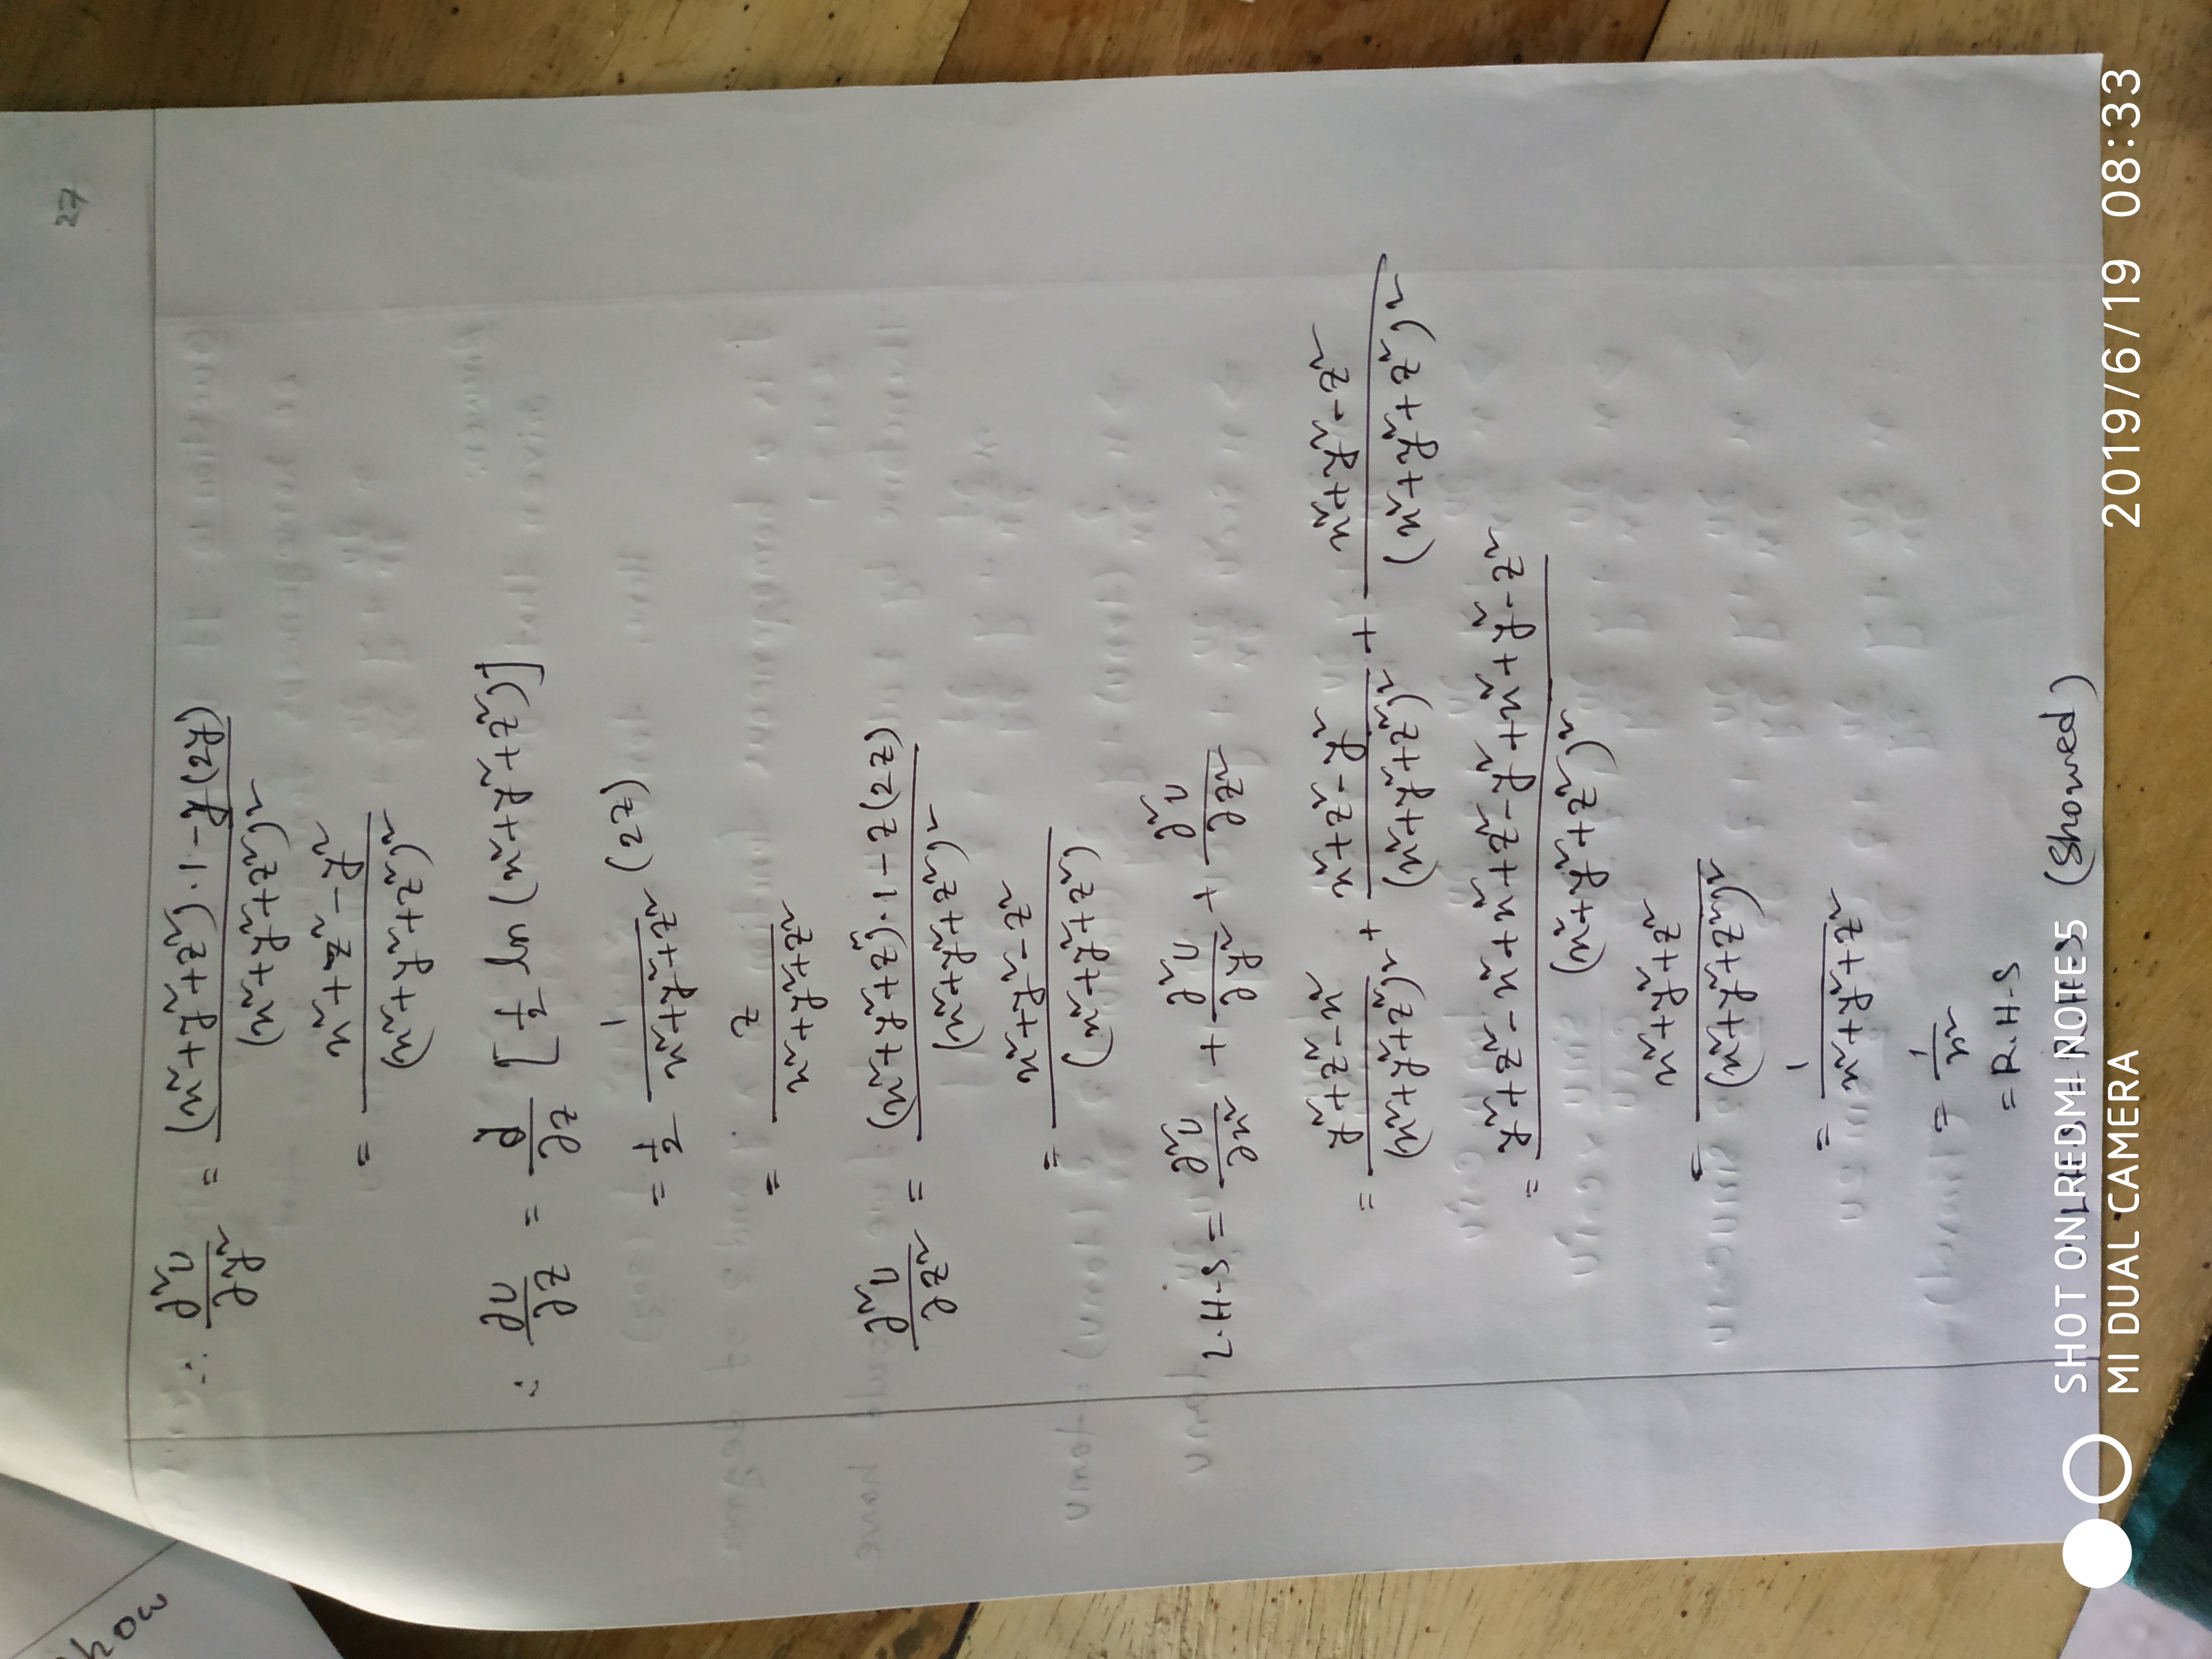 how
27
∴ ∂²U/∂y² = ((x²+y²+z²)·1-y(2y))/(x²+y²+z²)²
= (x²+z²-y²)/(x²+y²+z²)²
∴ ∂U/∂z = ∂/∂z [½ ln (x²+y²+z²)]
= ½ 1/(x²+y²+z²) (2z)
= z/(x²+y²+z²)
∂²U/∂z² = ((x²+y²+z²)·1-z(2z))/(x²+y²+z²)²
= (x²+y²-z²)/(x²+y²+z²)
L.H.S = ∂²U/∂x² + ∂²U/∂y² + ∂²U/∂z²
= (y²+z²-x²)/(x²+y²+z²)² + (x²+z²-y²)/(x²+y²+z²)² + (x²+y²-z²)/(x²+y²+z²)²
= (y²+z²-x²+x²+z²-y²+x²+y²-z²)/(x²+y²+z²)²
= (x²+y²+z²)/(x²+y²+z²)²
= 1/(x²+y²+z²)
= 1/r²
= R.H.S
∴ L.H.S = R.H.S (Showed)
SHOT ON REDMI NOTE 5
MI DUAL CAMERA
2019/6/19 08:33